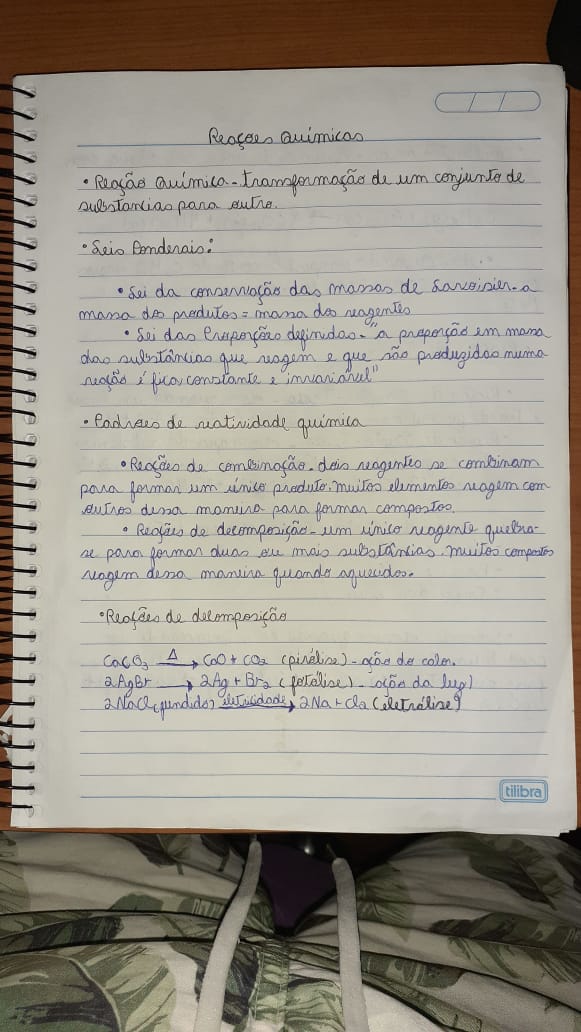 Reações Químicas
• Reação Química - transformação de um conjunto de
substancias para outro.
• Leis Ponderais:
• Lei da conservação das massas de Lavoisier - a
massa dos produtos = massa dos reagentes
• Lei das Proporções definidas - "a proporção em massa
das substâncias que reagem e que são produzidas numa
reação é fixa, constante e invariável"
• Padrões de reatividade química
• Reações de combinação - dois reagentes se combinam
para formar um único produto. Muitos elementos reagem com
outros dessa maneira para formar compostos.
• Reações de decomposição - um único reagente quebra-
se para formar duas ou mais substâncias. Muitos compostos
reagem dessa maneira quando aquecidos.
• Reações de decomposição
CaCO₃ Δ→ CaO + CO₂ (pirólise) - ação do calor.
2AgBr → 2Ag + Br₂ (fotólise) - ação da luz)
2NaCl (fundido) eletricidade→ 2Na + Cl₂ (eletrólise)
tilibra